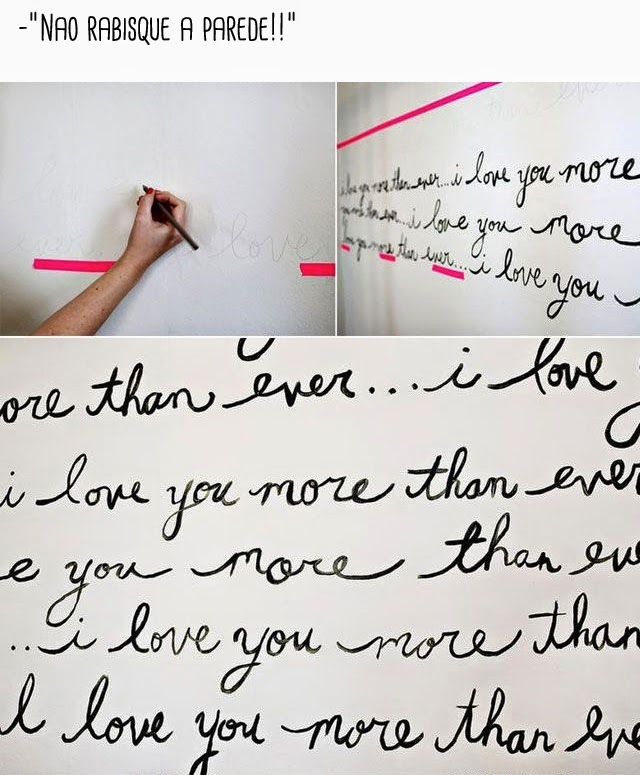 -"NAO RABISQUE A PAREDE!!"
ever.. love
i love you more than ever...i love you more
you more than ever...i love you more
love you more than ever...i love you
ore than ever...i love
i love you more than ever
e you more than eve
..i love you more than
I love you more than eve